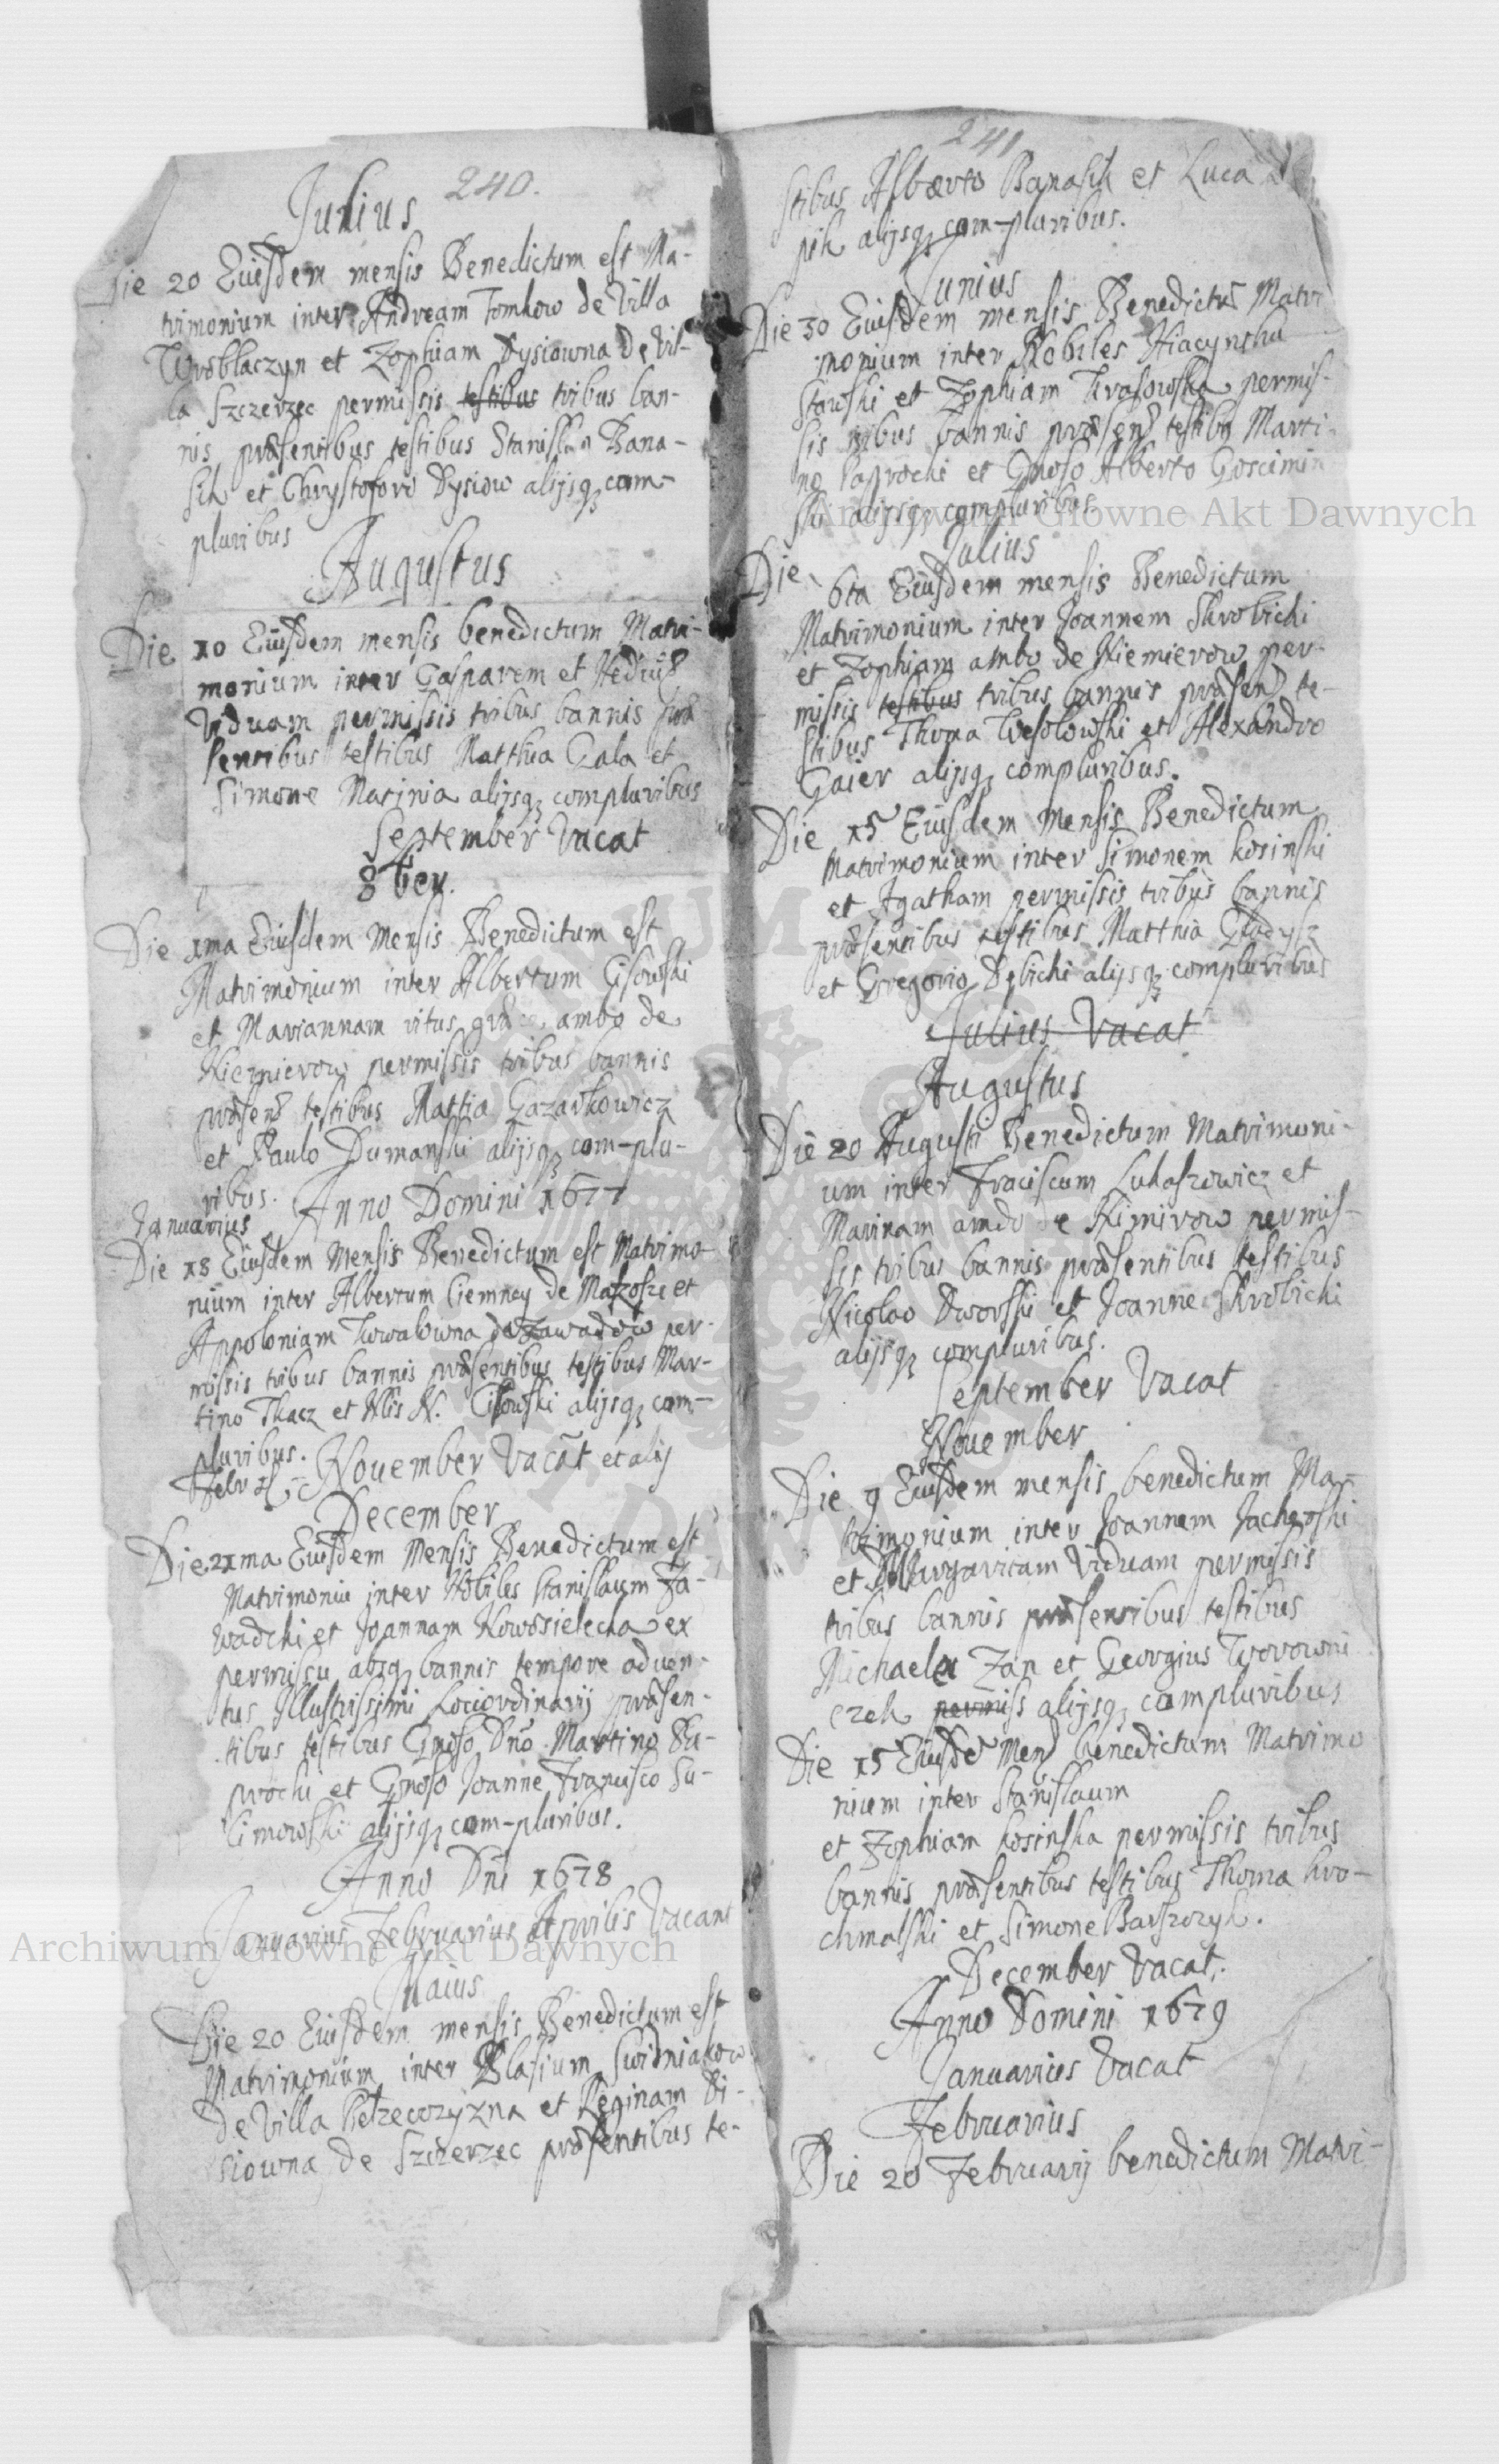 240.
Julius
Die 20 Eiusdem mensis Benedictum est Ma-
trimonium inter Andream Tomkow de Villa
Wroblaczyn et Zophiam Dysiowna de Vil-
la Szczerzec permissis testibus tribus ban-
nis præsentibus testibus Stanislao Bana-
sik et Chrystoforo Dysiow alijsq; com-
pluribus
Augustus
Die 10 Eiusdem mensis benedictum Matri-
monium inter Gasparem et Hedvig
Viduam permissis tribus bannis præ
sentibus testibus Matthia Gala et
Simone Macinia alijsq; compluribus
September Vacat
8ber.
Die 1ma Eiusdem Mensis Benedictum est
Matrimonium inter Albertum Cisowski
et Mariannam ambo de
Niemierow permissis tribus bannis
præsent testibus Mattia Gazarkowicz
et Paulo Dumanski alijsq; com-plu-
ribus.
Anno Domini 1677
Januarius
Die 18 Eiusdem Mensis Benedictum est Matrimo-
nium inter Albertum Ciemney de Makosze et
Appoloniam de Zawadow per-
missis tribus bannis præsentibus testibus Mar-
tino Tkacz et N. Cisowski alijsq; com-
pluribus.
November Vacat et alij
December
Die 21ma Eiusdem Mensis Benedictum est
Matrimoniu inter Nobiles Stanislaum Za-
wadcki et Joannam Nowosielecka ex
permissu absq; bannis tempore aduen-
tus Illustrissimi Lociordinarij præsen-
tibus testibus Gnoso Dno Martino Pa-
procki et Gnoso Joanne Francisco Su-
limowski alijsq; com-pluribus.
Anno Dni 1678
Januarius Februarius Aprilis Vacant
Maius
Die 20 Eiusdem mensis Benedictum est
Matrimonium inter Blasium Swidniakow
de Villa et Reginam Di-
siowna de Szczerzec præsentibus te-
241
stibus Alberto Banasik et Luca
pik alijsq; com-pluribus.
Junius
Die 30 Eiusdem mensis Benedictu Matri
monium inter Nobiles Hiacynthu
Stawski et Zophiam Krasowska permis-
sis tribus bannis præsent testibus Marti-
no Paprocki et Gnoso Alberto Goscimin
ski alijsq; compluribus.
Julius
Die 6ta Eiusdem mensis Benedictum
Matrimonium inter Joannem Skrobicki
et Zophiam ambo de Niemierow per-
missis testibus tribus bannis præsent te-
stibus Thoma Wesolowski et Alexandro
Gaier alijsq; compluribus.
Die 15 Eiusdem Mensis Benedictum
Matrimonium inter Simonem Kosinski
et Agatham permissis tribus bannis
præsentibus testibus Matthia Gladysz
et Gregorio Dębicki alijsq; compluribus
Julius Vacat
Augustus
Die 20 Augusti Benedictum Matrimoni-
um inter Fraciscum Lukaszowicz et
Marinam amdo de Nimirow permis-
sis tribus bannis præsentibus testibus
Nicolao Dworski et Joanne Skrobicki
alijsq; compluribus.
September Vacat
Nouember
Die 9 Eiusdem mensis benedictum Ma-
trimonium inter Joannem
et Margaritam Viduam permissis
tribus bannis præsentibus testibus
Michaele Zan et Georgius Worowni
czek permiss alijsq; compluribus
Die 15 Eiusde Mens benedictum Matrimo
nium inter Stanislaum
et Zophiam Kosinska permissis tribus
bannis præsentibus testibus Thoma Kro-
chmalski et Simone Barszczyk.
December Vacat.
Anno Domini 1679
Januarius Vacat
Februarius
Die 20 Februarij benedictum Matri-
Archiwum Główne Akt Dawnych
Archiwum Główne Akt Dawnych